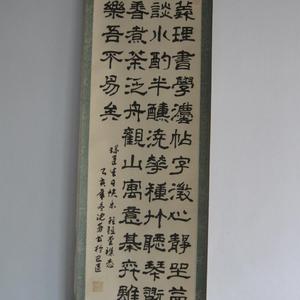 義理書學灋帖字澂心靜坐益
談小酌半醺澆華種竹聽琴翫
香煮茶泛舟觀山寓意棊弈雖
樂吾不易矣
乙亥年冬